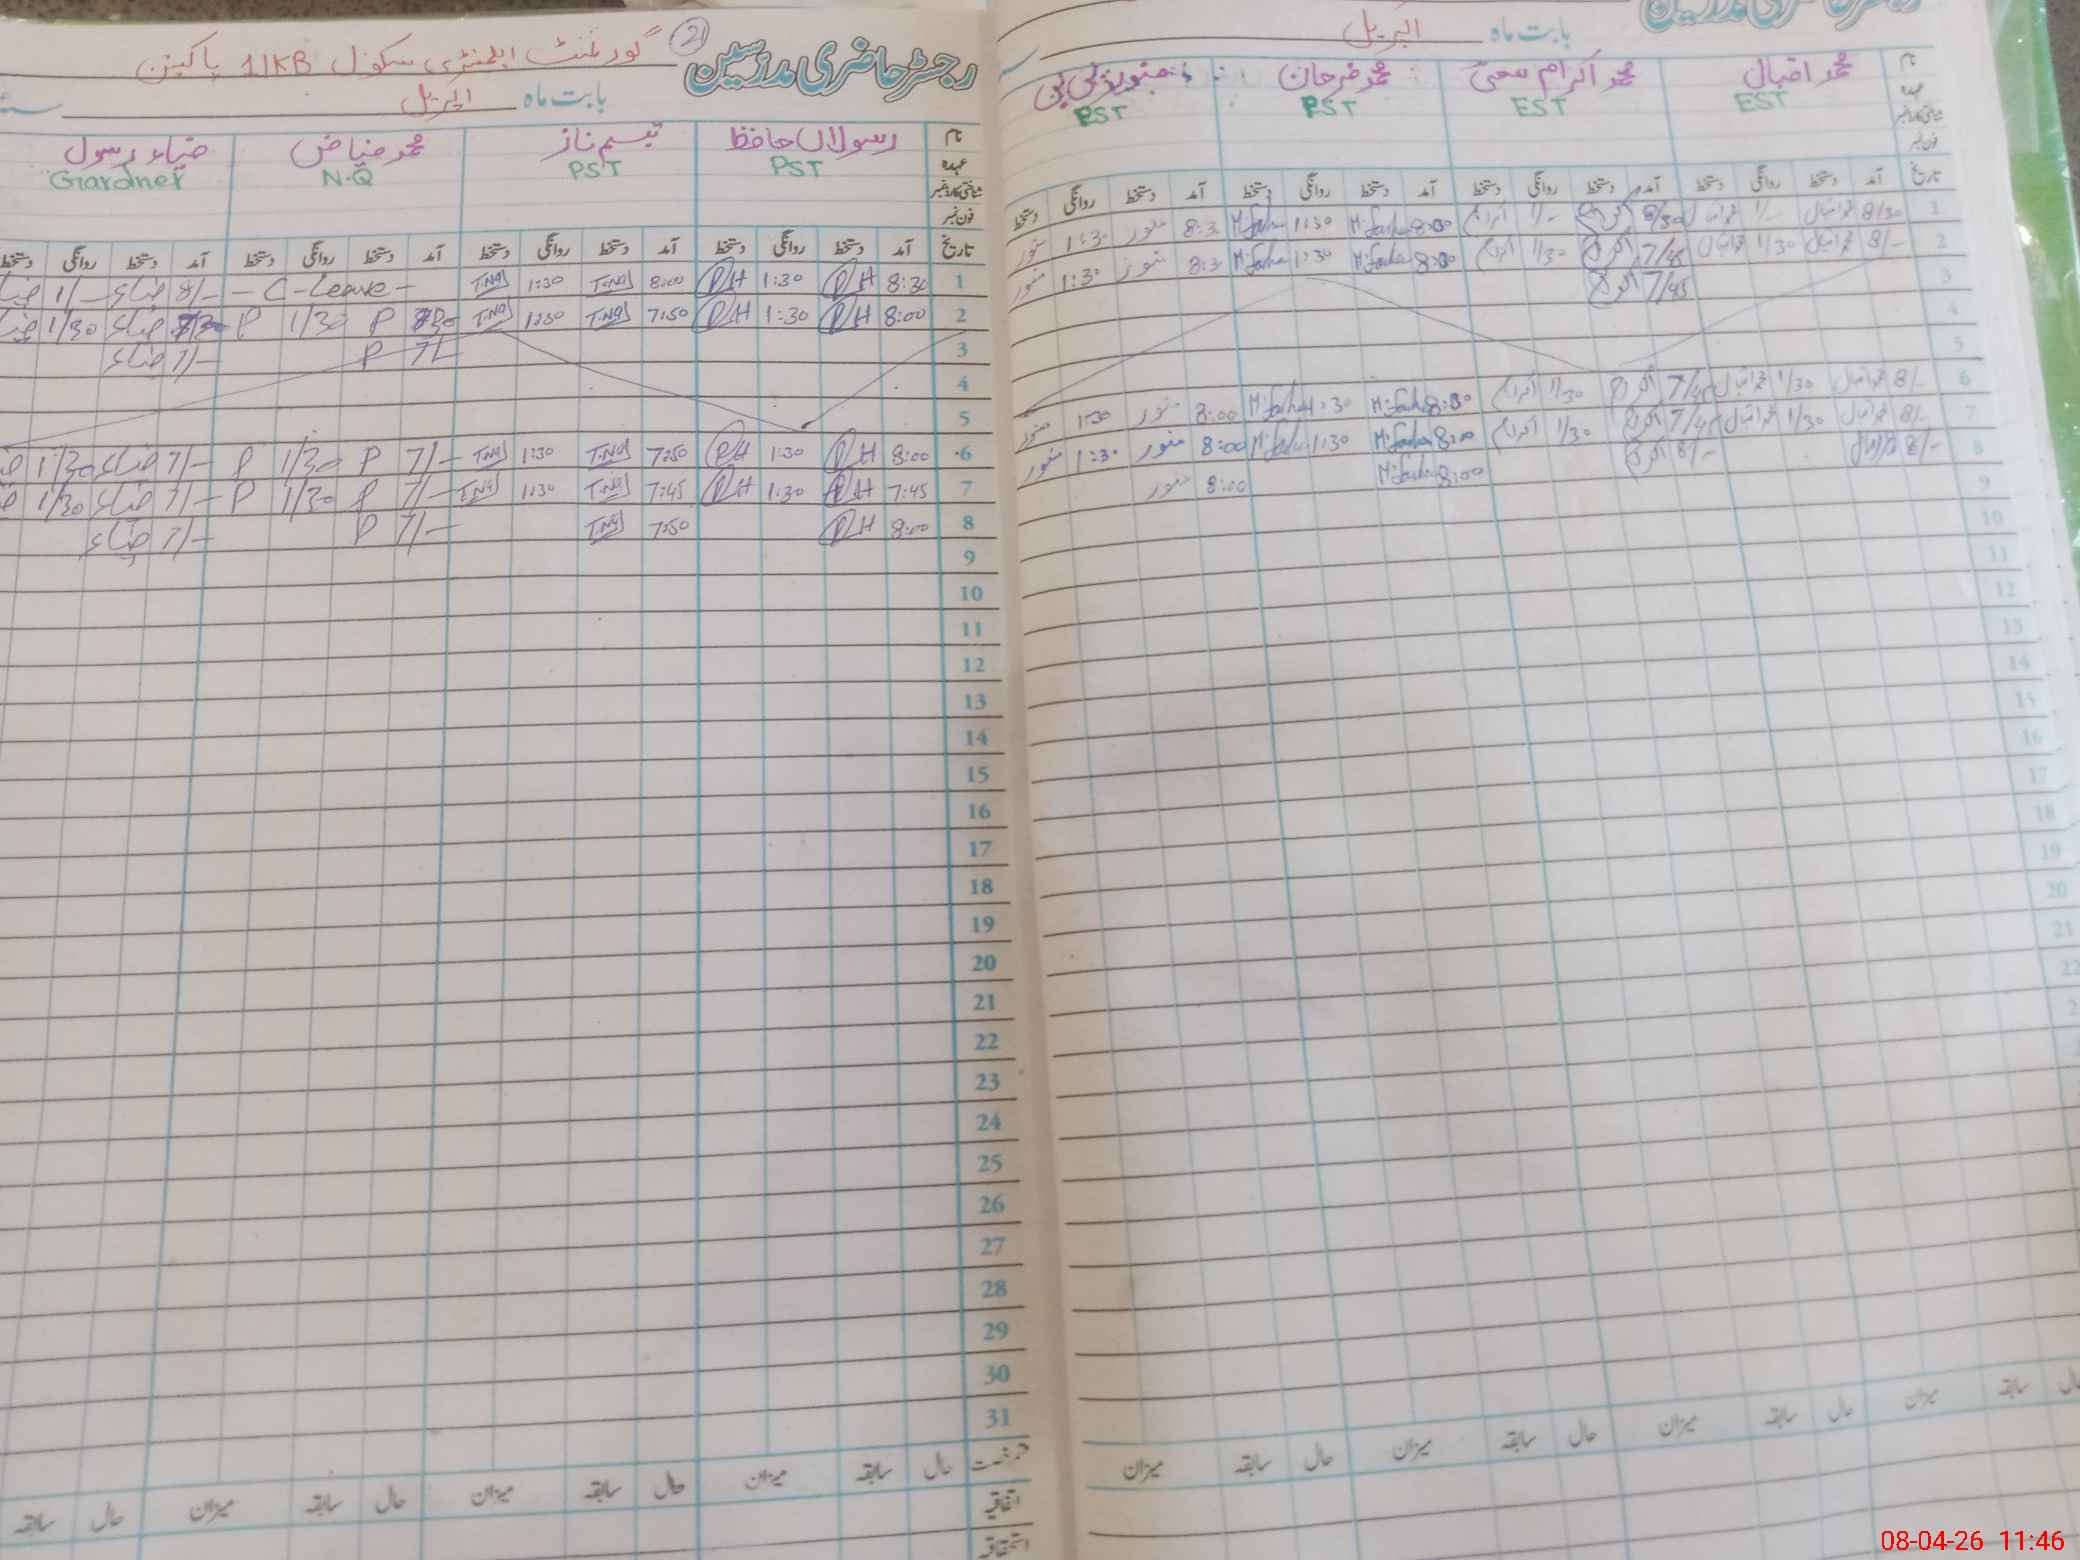 رجسٹر حاضری مدرسین
بابت ماہ اپریل
نام محمد اقبال محمد اکرام محمد فرحان
عہدہ EST EST PST PST
شناختی کارڈ نمبر
فون نمبر
تاریخ آمد دستخط روانگی دستخط آمد دستخط روانگی دستخط آمد دستخط روانگی دستخط آمد دستخط روانگی دستخط
1 8/30 اقبال 1/- اقبال 8/30 اکرام 1/- اکرام 8:00 M.Farhan 1:30 M.Farhan 8:3 منور 1:30 منور
2 8/- اقبال 1/30 اقبال 7/45 اکرام 1/30 اکرام 8:00 M.Farhan 1:30 M.Farhan 8:3 منور 1:30 منور
3 7/45 اکرام
4
5
6 8/- اقبال 1/30 اقبال 7/45 اکرام 1/30 اکرام 8:00 M.Farhan 1:30 M.Farhan 8:00 منور 1:30 منور
7 8/- اقبال 1/30 اقبال 7/45 اکرام 1/30 اکرام 8:00 M.Farhan 1:30 M.Farhan 8:00 منور 1:30 منور
8 8/- اقبال 8/- اکرام 8:00 M.Farhan 8:00 منور
9
10
11
12
13
14
15
16
17
18
19
20
21
22
میزان سابقہ حال میزان سابقہ حال میزان سابقہ حال میزان سابقہ حال
رجسٹر حاضری مدرسین 2 گورنمنٹ ایلمنٹری سکول 11KB پاکپتن
بابت ماہ اپریل
نام رسولاں حافظ تبسم ناز محمد فیاض ضیاء رسول
عہدہ PST PST N.Q Gardner
شناختی کارڈ نمبر
فون نمبر
تاریخ آمد دستخط روانگی دستخط آمد دستخط روانگی دستخط آمد دستخط روانگی دستخط آمد دستخط روانگی دستخط
1 8:30 RH 1:30 RH 8:00 T.Naz 1:30 T.Naz - C-Leave - 8/- ضیاء 1/- ضیاء
2 8:00 RH 1:30 RH 7:50 T.Naz 1:30 T.Naz P 1/30 P ضیاء 1/30 ضیاء
3 7/- P 7/- ضیاء
4
5
6 8:00 RH 1:30 RH 7:50 T.Naz 1:30 T.Naz 7/- P 1/30 P 7/- ضیاء 1/30
7 7:45 RH 1:30 RH 7:45 T.Naz 1:30 T.Naz 7/- P 1/30 P 7/- ضیاء 1/30
8 8:00 RH 7:50 T.Naz 7/- P 7/- ضیاء
9
10
11
12
13
14
15
16
17
18
19
20
21
22
23
24
25
26
27
28
29
30
31
حال سابقہ میزان حال سابقہ میزان حال سابقہ میزان حال سابقہ
اتفاقیہ
استحقاقیہ
08-04-26 11:46